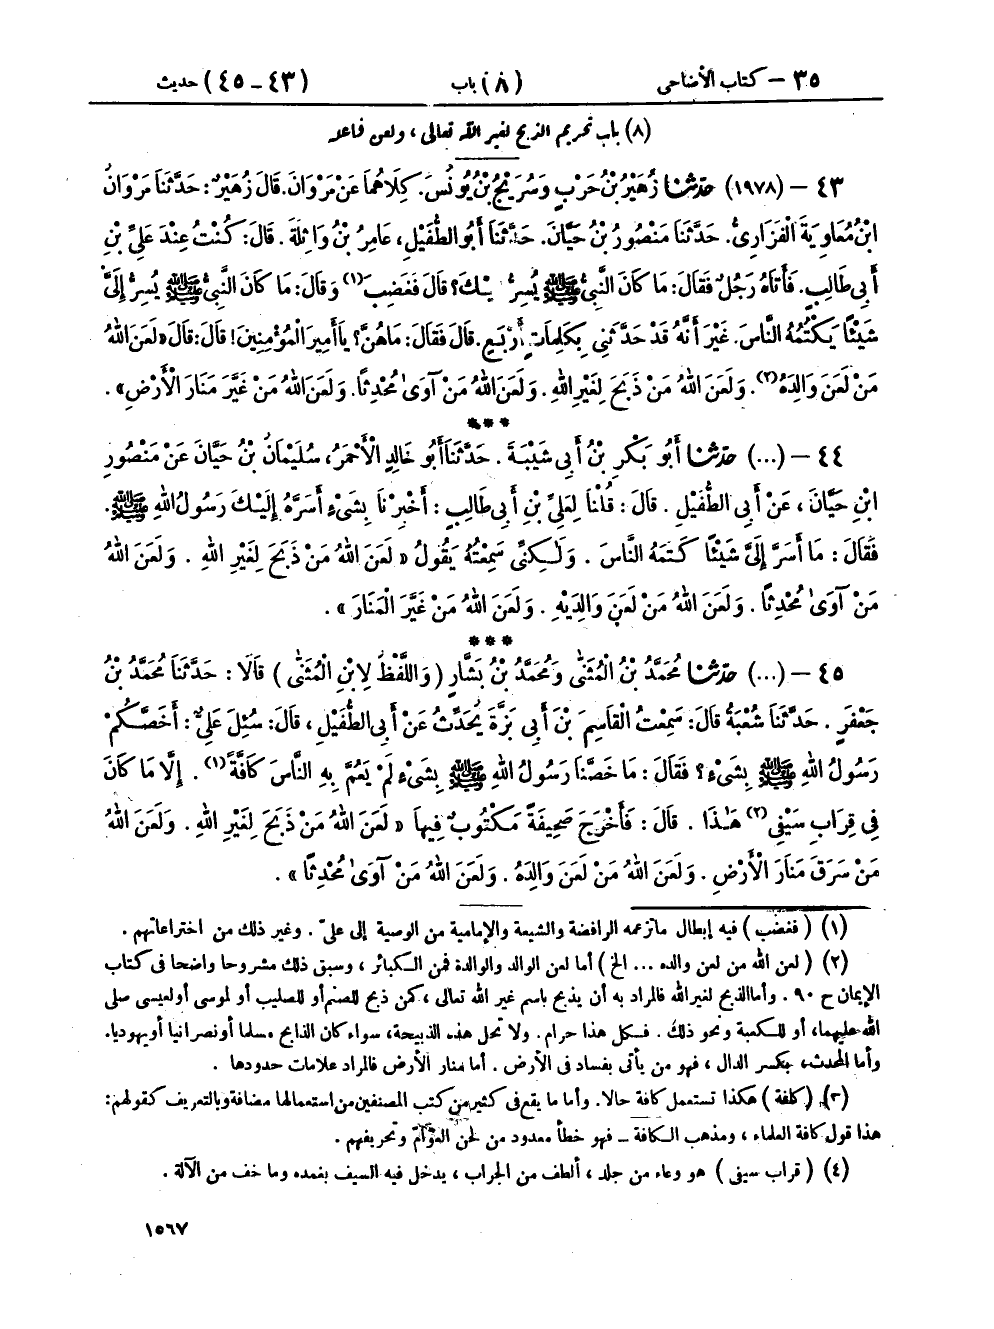 ٣٥ – كتاب الأضاحى (٨) باب (٤٣ – ٤٥) حديث
(٨) باب تحريم الذبح لغير الله تعالى ، ولعن فاعله
٤٣ – (١٩٧٨) حَدَّثَنَا زُهَيْرُ بْنُ حَرْبٍ وَسُرَيْجُ بْنُ يُونُسَ. كِلَاهُمَا عَنْ مَرْوَانَ. قَالَ زُهَيْرٌ: حَدَّثَنَا مَرْوَانُ
ابْنُ مُعَاوِيَةَ الْفَزَارِىُّ. حَدَّثَنَا مَنْصُورُ بْنُ حَيَّانَ. حَدَّثَنَا أَبُو الطُّفَيْلِ، عَامِرُ بْنُ وَاثِلَةَ. قَالَ: كُنْتُ عِنْدَ عَلِىِّ بْنِ
أَبِى طَالِبٍ. فَأَتَاهُ رَجُلٌ فَقَالَ: مَا كَانَ النَّبِىُّ ﷺ يُسِرُّ إِلَيْكَ؟ قَالَ فَغَضِبَ(١) وَقَالَ: مَا كَانَ النَّبِىُّ ﷺ يُسِرُّ إِلَىَّ
شَيْئًا يَكْتُمُهُ النَّاسَ. غَيْرَ أَنَّهُ قَدْ حَدَّثَنِى بِكَلِمَاتٍ أَرْبَعٍ. قَالَ فَقَالَ: مَا هُنَّ؟ يَا أَمِيرَ الْمُؤْمِنِينَ! قَالَ: قَالَ «لَعَنَ اللهُ
مَنْ لَعَنَ وَالِدَهُ(٢). وَلَعَنَ اللهُ مَنْ ذَبَحَ لِغَيْرِ اللهِ. وَلَعَنَ اللهُ مَنْ آوَىٰ مُحْدِثًا. وَلَعَنَ اللهُ مَنْ غَيَّرَ مَنَارَ الْأَرْضِ».
***
٤٤ – (...) حَدَّثَنَا أَبُو بَكْرِ بْنُ أَبِى شَيْبَةَ . حَدَّثَنَا أَبُو خَالِدٍ الْأَحْمَرُ، سُلَيْمَانُ بْنُ حَيَّانَ عَنْ مَنْصُورِ
ابْنِ حَيَّانَ ، عَنْ أَبِى الطُّفَيْلِ . قَالَ : قُلْنَا لِعَلِىِّ بْنِ أَبِى طَالِبٍ : أَخْبِرْنَا بِشَىْءٍ أَسَرَّهُ إِلَيْكَ رَسُولُ اللهِ ﷺ.
فَقَالَ : مَا أَسَرَّ إِلَىَّ شَيْئًا كَتَمَهُ النَّاسَ . وَلَـٰكِنِّى سَمِعْتُهُ يَقُولُ « لَعَنَ اللهُ مَنْ ذَبَحَ لِغَيْرِ اللهِ . وَلَعَنَ اللهُ
مَنْ آوَىٰ مُحْدِثًا . وَلَعَنَ اللهُ مَنْ لَعَنَ وَالِدَيْهِ . وَلَعَنَ اللهُ مَنْ غَيَّرَ الْمَنَارَ » .
***
٤٥ – (...) حَدَّثَنَا مُحَمَّدُ بْنُ الْمُثَنَّىٰ وَمُحَمَّدُ بْنُ بَشَّارٍ ( وَاللَّفْظُ لِابْنِ الْمُثَنَّىٰ ) قَالَا : حَدَّثَنَا مُحَمَّدُ بْنُ
جَعْفَرٍ . حَدَّثَنَا شُعْبَةُ قَالَ: سَمِعْتُ الْقَاسِمَ بْنَ أَبِى بَزَّةَ يُحَدِّثُ عَنْ أَبِى الطُّفَيْلِ ، قَالَ: سُئِلَ عَلِىٌّ : أَخَصَّكُمْ
رَسُولُ اللهِ ﷺ بِشَىْءٍ ؟ فَقَالَ : مَا خَصَّنَا رَسُولُ اللهِ ﷺ بِشَىْءٍ لَمْ يَعُمَّ بِهِ النَّاسَ كَافَّةً(١) . إِلَّا مَا كَانَ
فِى قِرَابِ سَيْفِى(٢) هَـٰذَا . قَالَ : فَأَخْرَجَ صَحِيفَةً مَكْتُوبٌ فِيهَا « لَعَنَ اللهُ مَنْ ذَبَحَ لِغَيْرِ اللهِ . وَلَعَنَ اللهُ
مَنْ سَرَقَ مَنَارَ الْأَرْضِ . وَلَعَنَ اللهُ مَنْ لَعَنَ وَالِدَهُ . وَلَعَنَ اللهُ مَنْ آوَىٰ مُحْدِثًا » .
(١) ( فغضب ) فيه إبطال ما تزعمه الرافضة والشيعة والإمامية من الوصية إلى علىّ . وغير ذلك من اختراعاتهم .
(٢) ( لعن الله من لعن والده ... الخ ) أما لعن الوالد والوالدة فمن الكبائر ، وسبق ذلك مشروحا واضحا فى كتاب
الإيمان ح ٩٠ . وأما الذبح لغير الله فالمراد به أن يذبح باسم غير الله تعالى ، كمن ذبح للصنم أو للصليب أو لموسى أو لعيسى صلى
الله عليهما، أو للكعبة ونحو ذلك . فكل هذا حرام . ولا تحل هذه الذبيحة، سواء كان الذابح مسلما أو نصرانيا أو يهوديا.
وأما المحدث، بكسر الدال ، فهو من يأتى بفساد فى الأرض . أما منار الأرض فالمراد علامات حدودها .
(٣) (كافة) هكذا تستعمل كافة حالا. وأما ما يقع فى كثير من كتب المصنفين من استعمالها مضافة وبالتعريف كقولهم:
هذا قول كافة العلماء ، ومذهب الكافة – فهو خطأ معدود من لحن العوامّ وتحريفهم .
(٤) ( قراب سيفى ) هو وعاء من جلد ، ألطف من الجراب ، يدخل فيه السيف بغمده وما خف من الآلة .
١٥٦٧